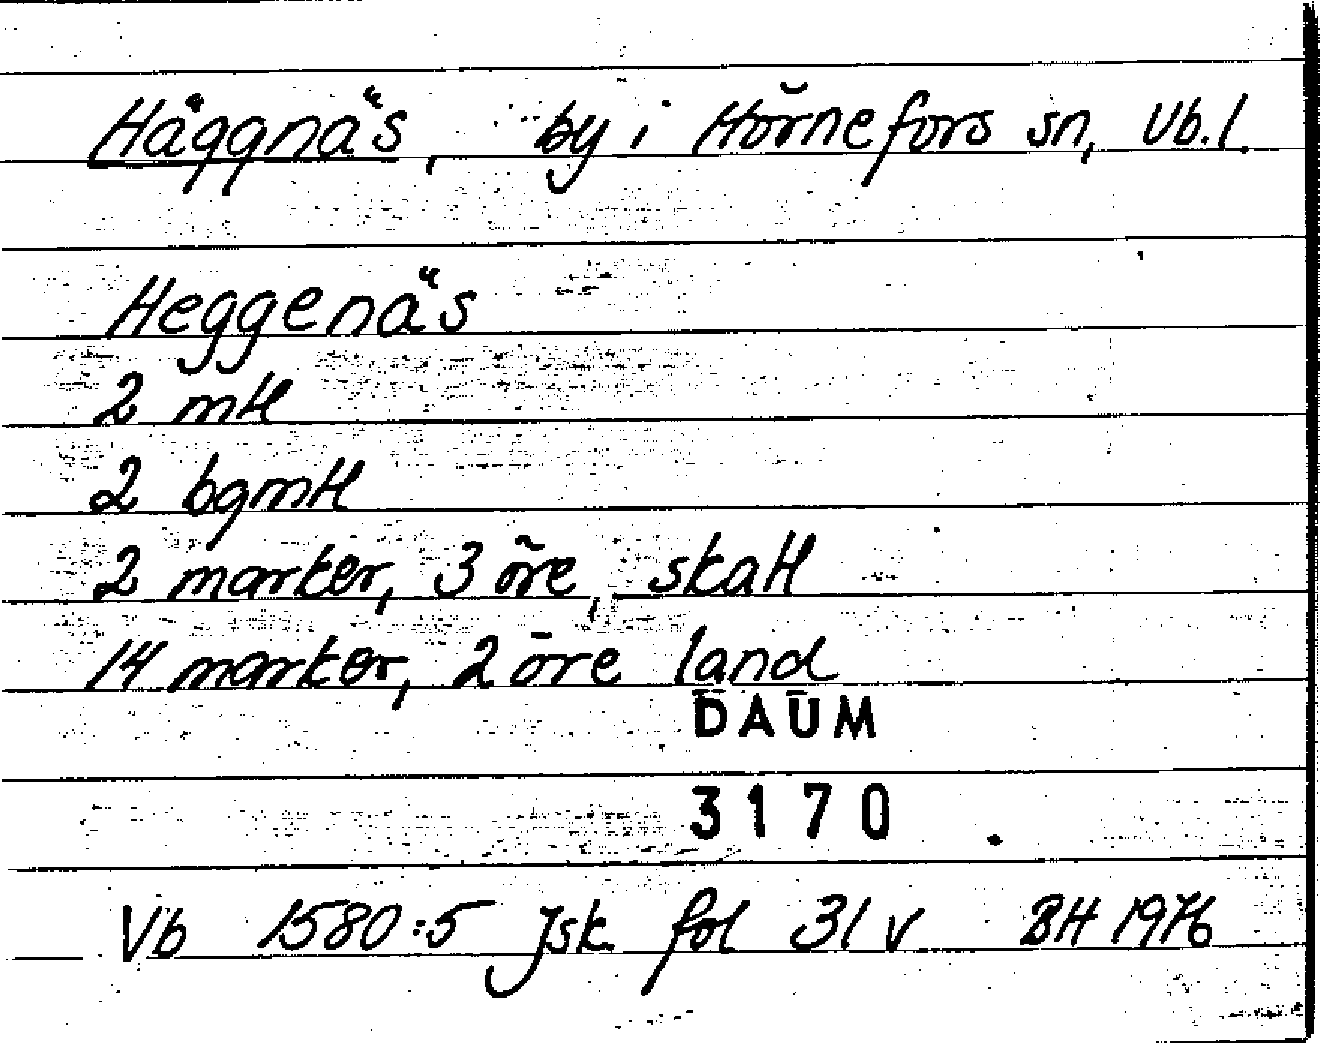 Häggnäs, by i Hörnefors sn, Vb. l.
Heggenäs
2 mtl
2 bgmtl
2 marker, 3 öre, skatt
14 marker, 2 öre land
DAUM
3170
Vb 1580:5 Jsk fol 31 v BH 1976